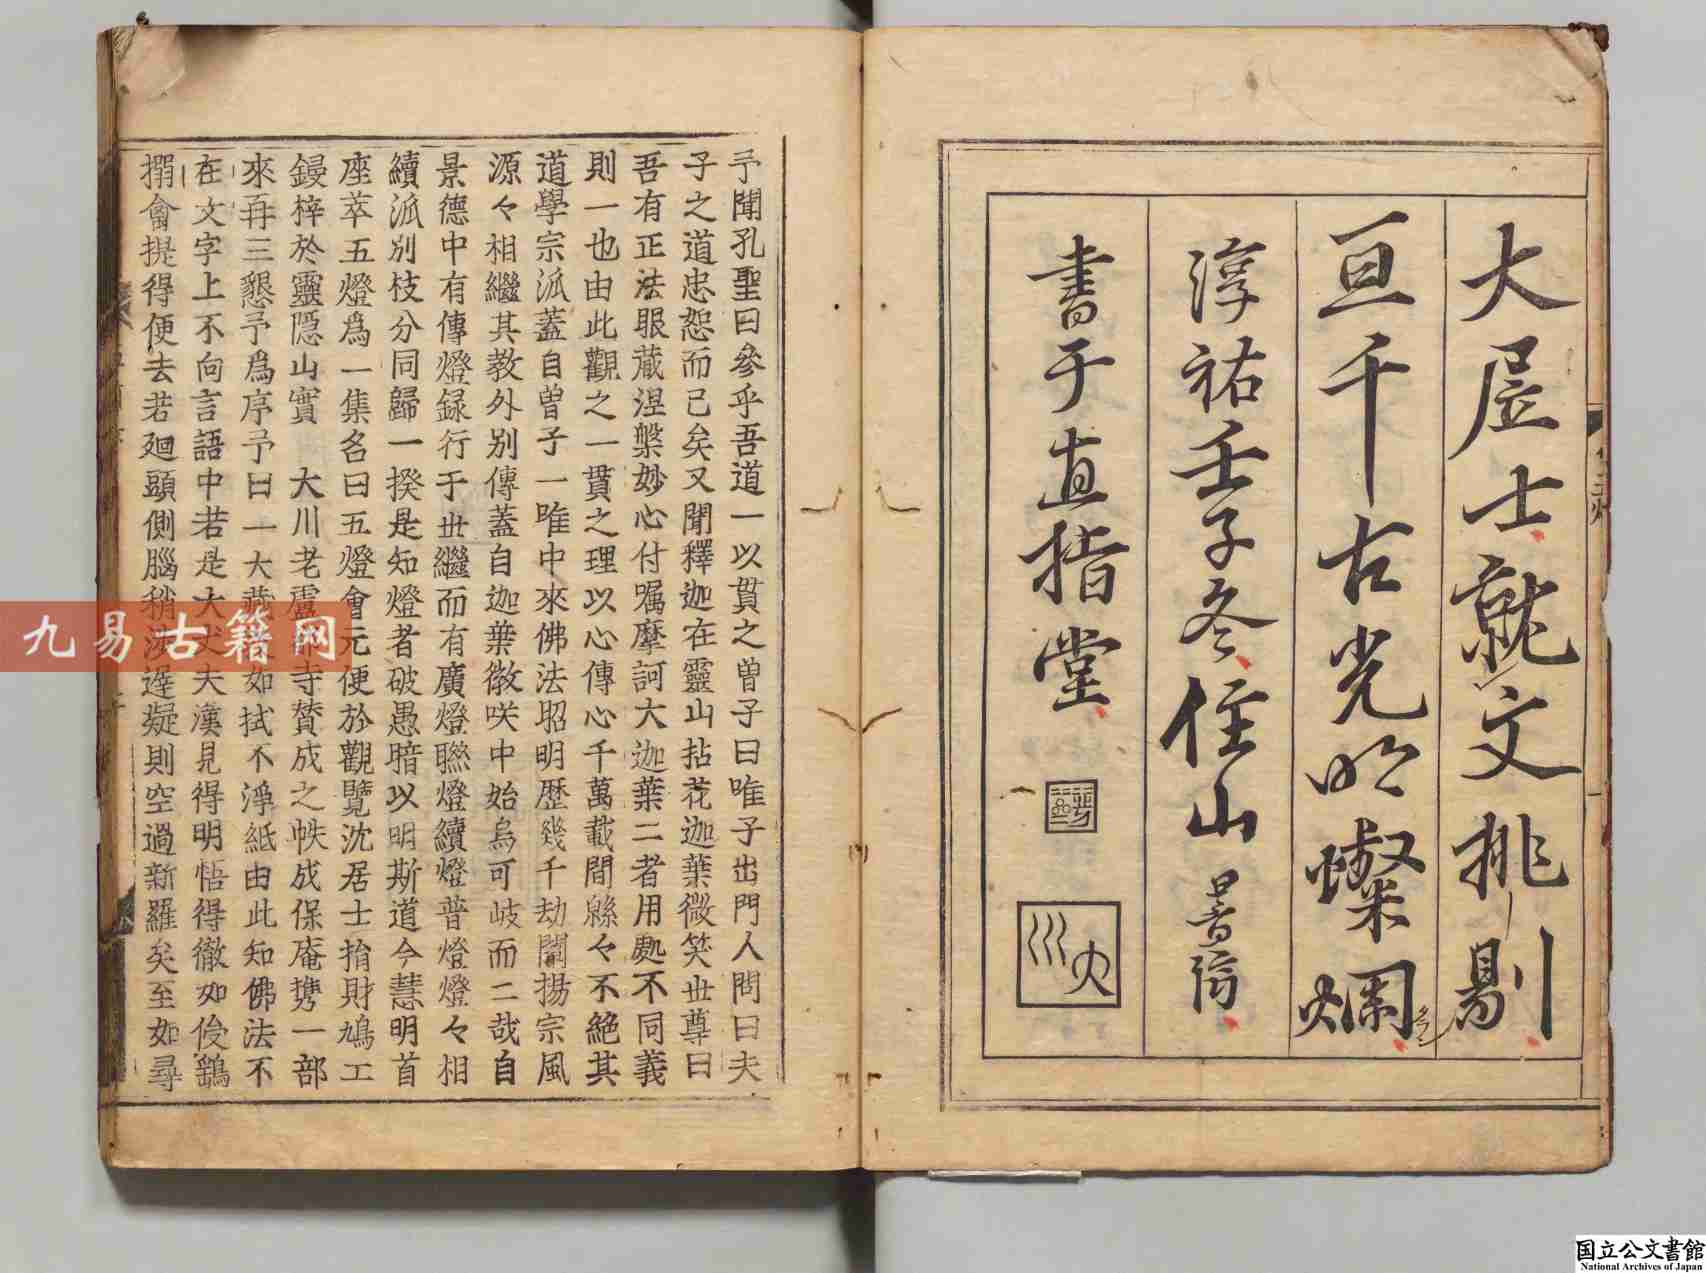 大居士就文挑剔
亘千古光明燦爛
淳祐壬子冬住山普濟
書于直指堂
大川
予聞孔聖曰參乎吾道一以貫之曾子曰唯子出門人問曰夫
子之道忠恕而已矣又聞釋迦在靈山拈花迦葉微笑世尊曰
吾有正法眼藏涅槃妙心付囑摩訶大迦葉二者用處不同義
則一也由此觀之一貫之理以心傳心千萬載間緜々不絕其
道學宗派蓋自曾子一唯中來佛法昭明歷幾千劫闡揚宗風
源々相繼其教外別傳蓋自迦葉微咲中始烏可岐而二哉自
景德中有傳燈録行于世繼而有廣燈聯燈續燈普燈燈々相
續派別枝分同歸一揆是知燈者破愚暗以明斯道今慧明首
座萃五燈爲一集名曰五燈會元便於觀覽沈居士捐財鳩工
鋟梓於靈隱山實 大川老盧寺賛成之帙成保庵携一部
來再三懇予爲序予曰一大藏如拭不淨紙由此知佛法不
在文字上不向言語中若是大丈夫漢見得明悟得徹如俊鷂
搦禽提得便去若廻頭側腦稍涉遲疑則空過新羅矣至如尋
九易古籍网
国立公文書館
National Archives of Japan